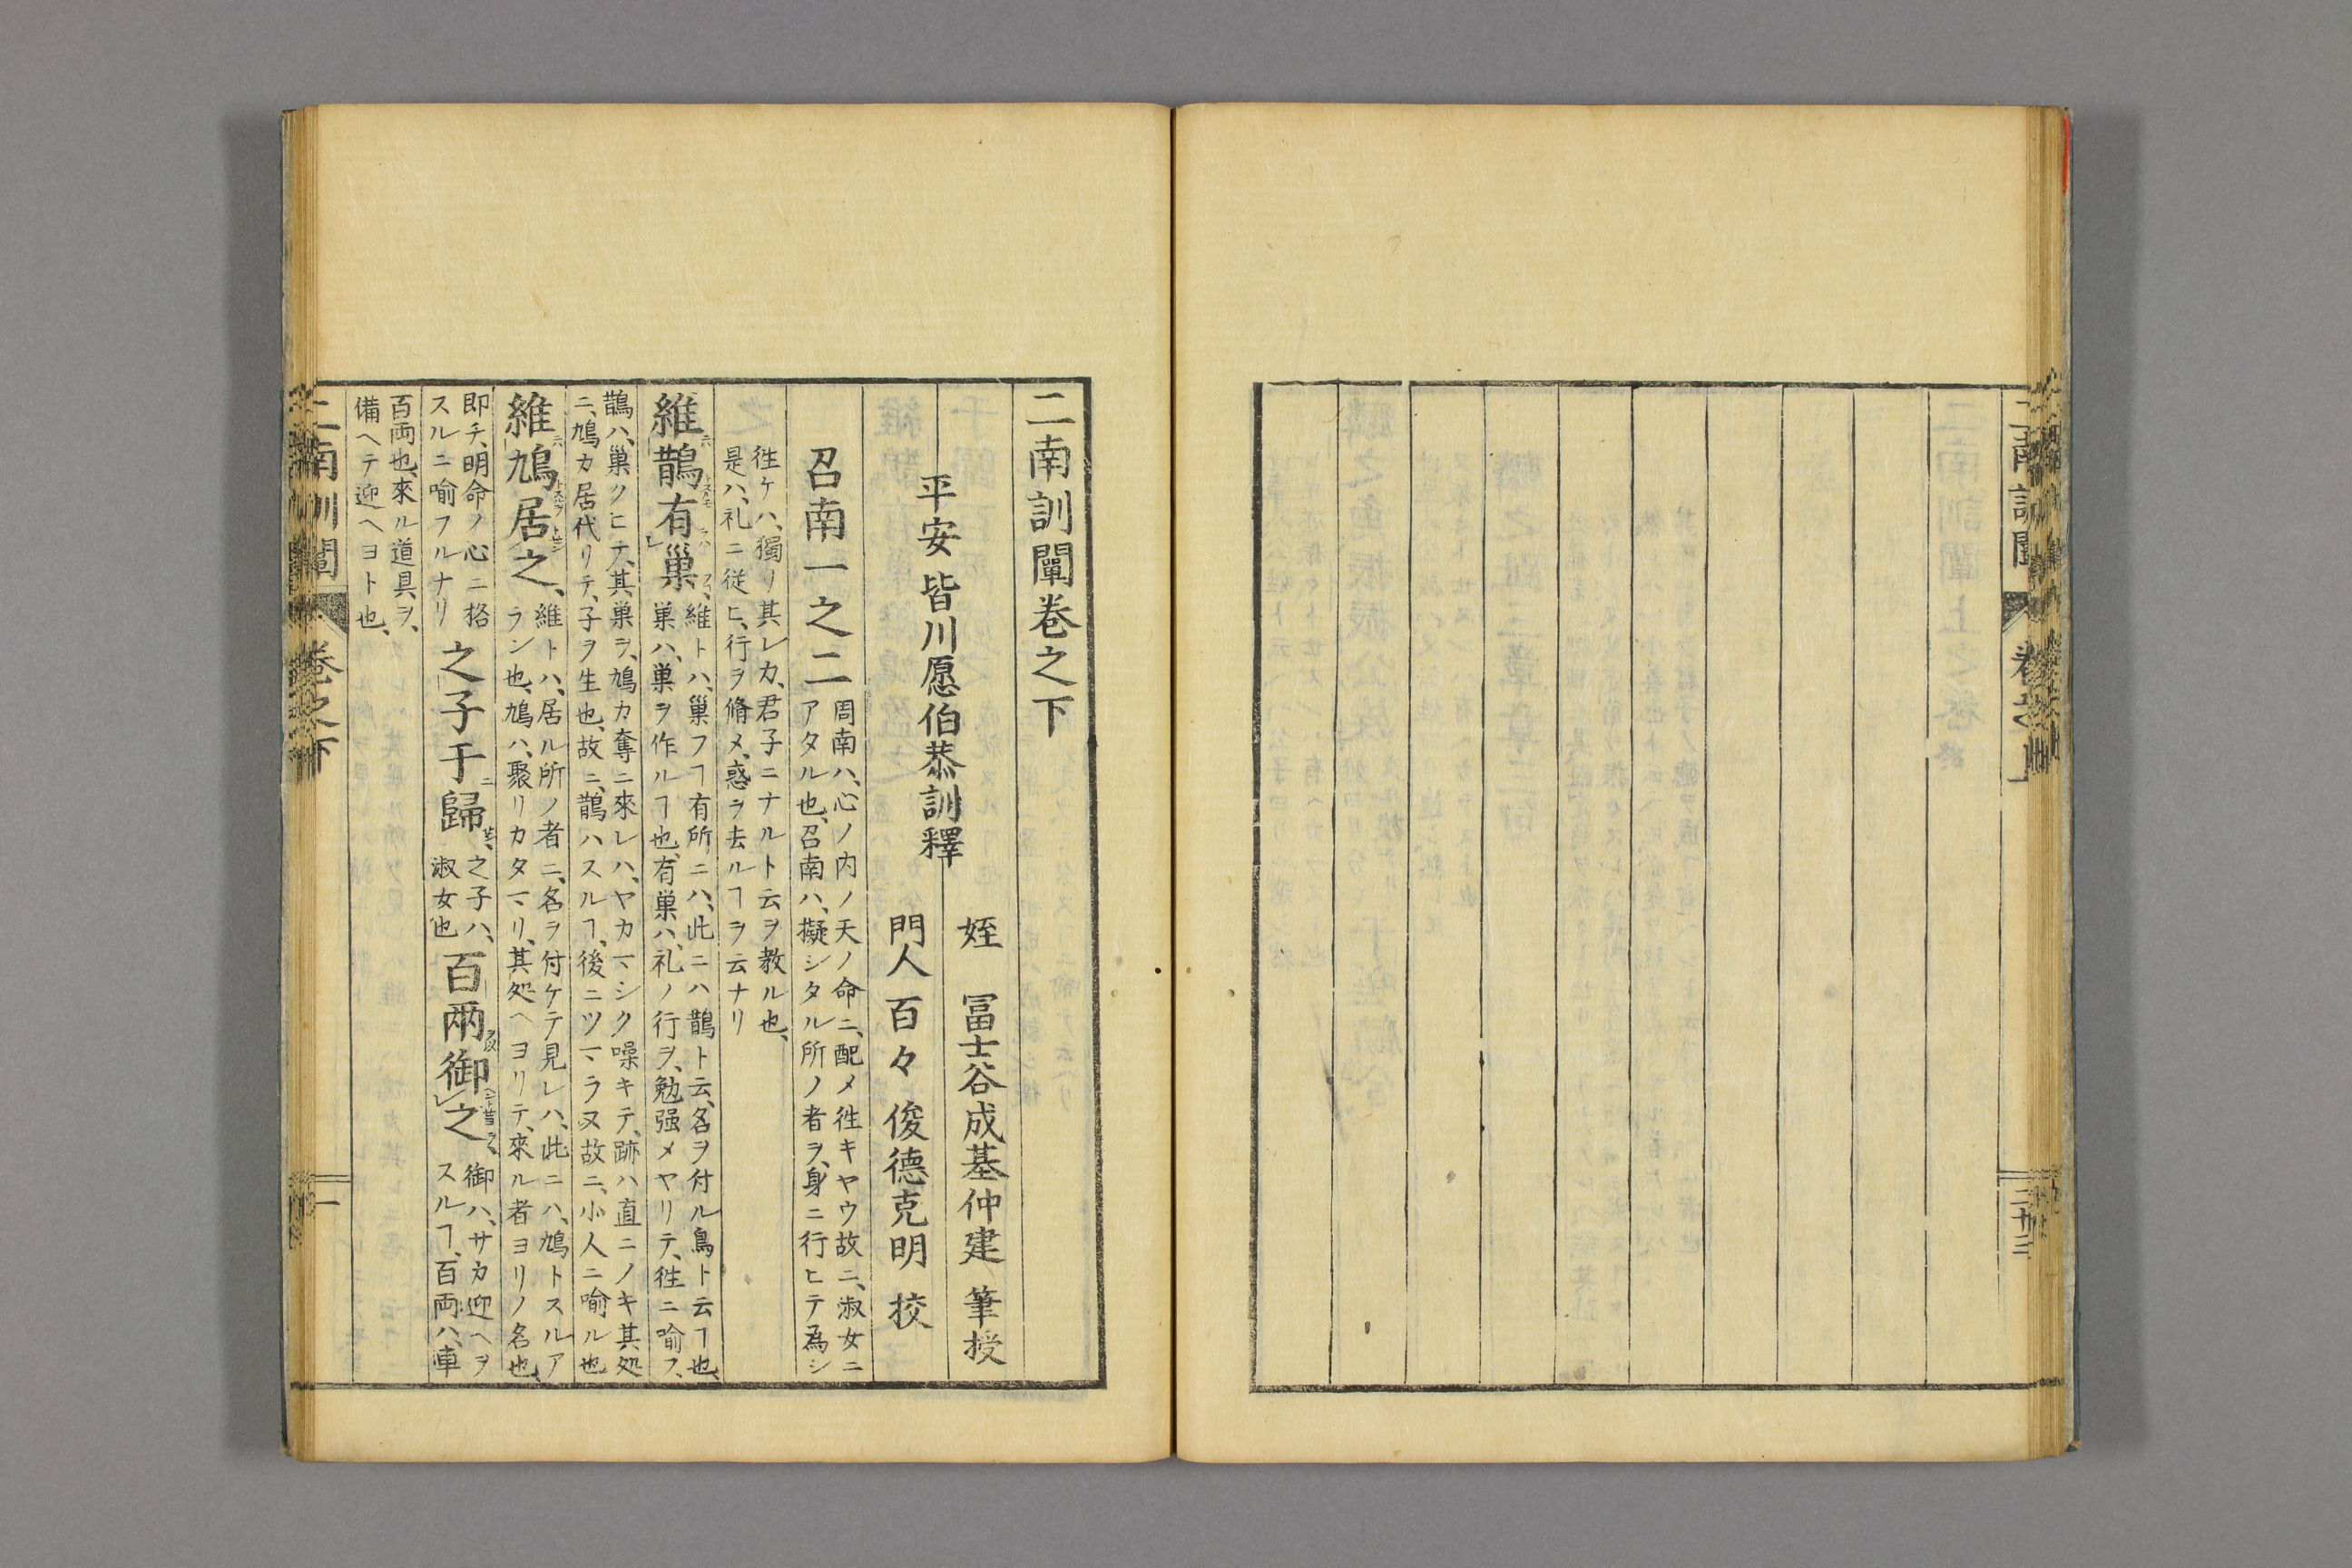 二南訓闡
卷之上
三十三
二南訓闡卷之下
平安 皆川愿伯恭訓釋
姪 冨士谷成基仲建 筆授
門人 百々 俊德克明 挍
召南一之二
周南ハ、心ノ内ノ天ノ命ニ、配メ徃キヤウ故ニ、淑女ニ
アタル也、召南ハ、擬シタル所ノ者ヲ、身ニ行ヒテ為シ
徃ケハ、獨リ其レカ、君子ニナルト云ヲ教ル也、
是ハ、礼ニ従ヒ、行ヲ脩メ、惑ヲ去ルヿヲ云ナリ
維鵲有巢
維トハ、巢フヿ有所ニハ、此ニハ鵲ト云、名ヲ付ル鳥ト云ヿ也、
巢ハ、巢ヲ作ルヿ也、有巢ハ、礼ノ行ヲ、勉强メヤリテ、徃ニ喻フ、
鵲ハ、巢クヒテ、其巢ヲ、鳩カ奪ニ來レハ、ヤカマシク噪キテ、跡ハ直ニノキ其処
ニ、鳩カ居代リテ、子ヲ生也、故ニ、鵲ハスルヿ、後ニツマラヌ故ニ、小人ニ喻ル也
維鳩居之、
維トハ、居ル所ノ者ニ、名ヲ付ケテ見レハ、此ニハ、鳩トスルア
ラン也、鳩ハ、聚リカタマリ、其処ヘヨリテ、來ル者ヨリノ名也、
即チ、明命ノ心ニ格
スルニ喻フルナリ
之子于歸
之子ハ、
淑女也
百兩御之
御ハ、サカ迎ヘヲ
スルヿ、百両ハ、車
百両也、來ル道具ヲ、
備ヘテ迎ヘヨト也、
二南訓闡
卷之下
一